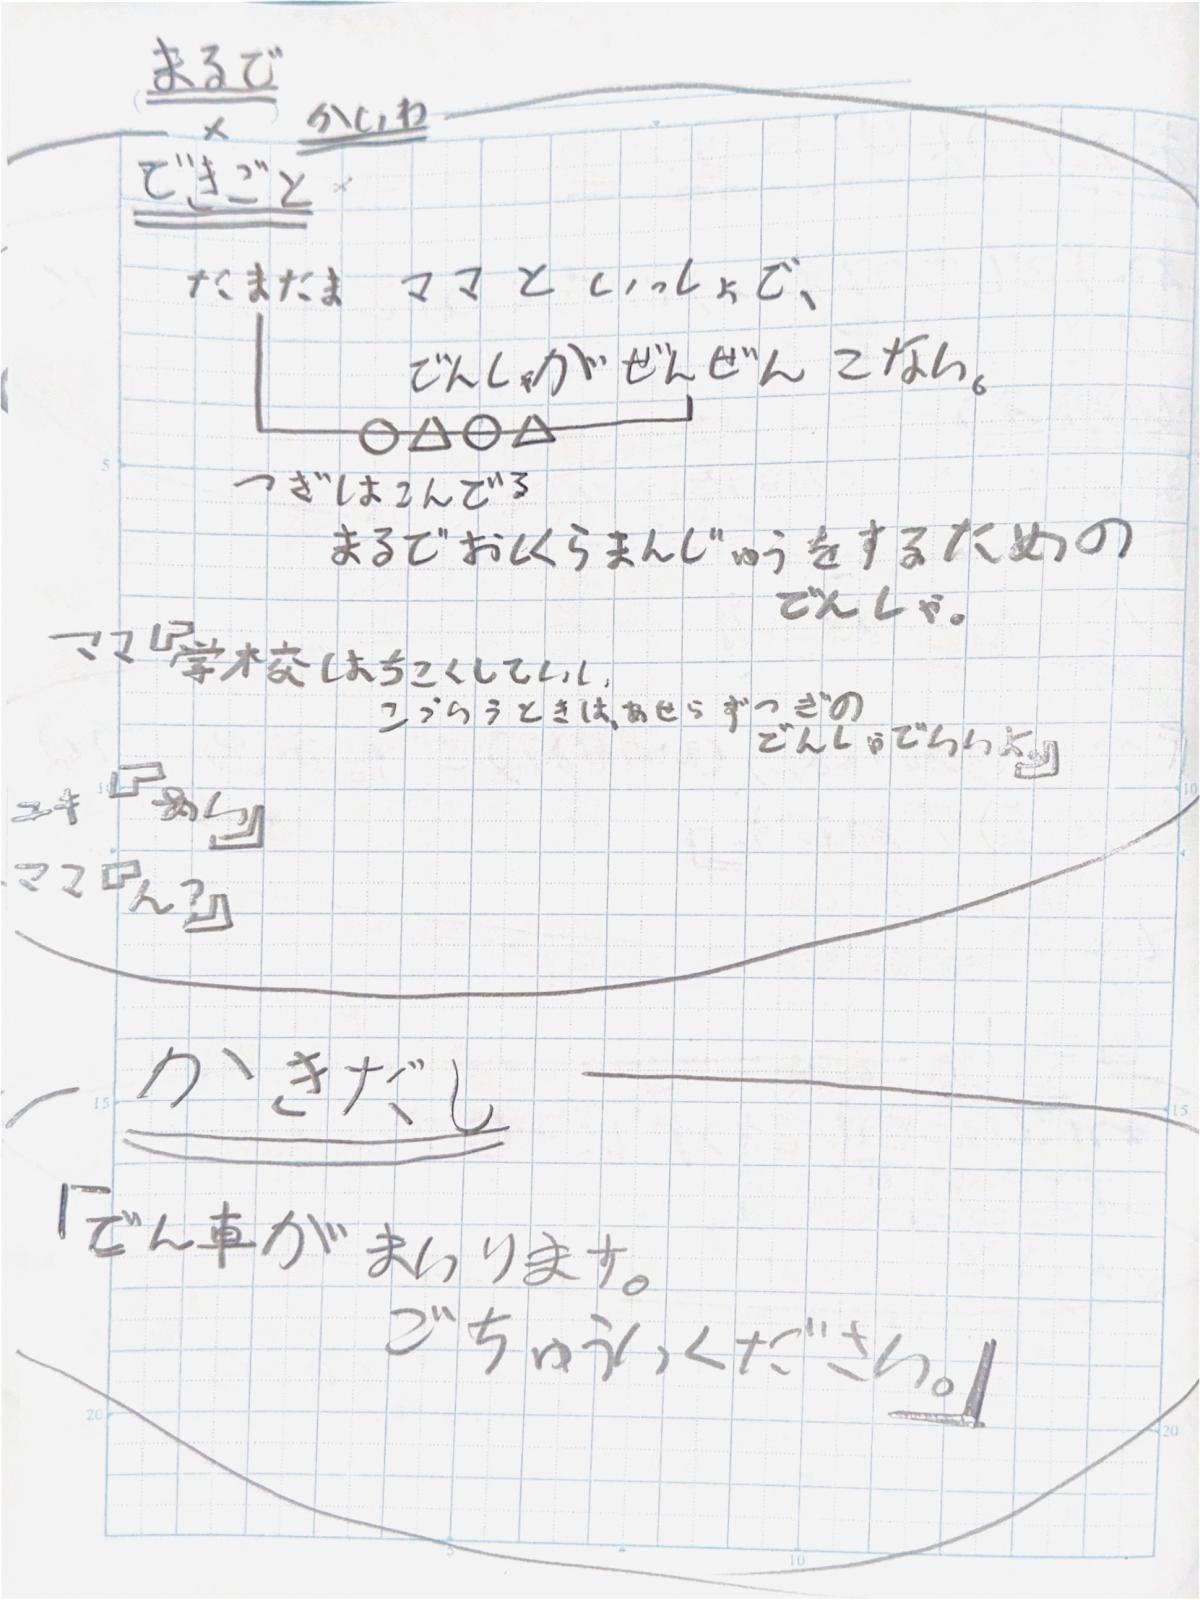 まるで
×
かいわ
できごと ×
たまたま ママ と いっしょで、
でんしゃが ぜんぜん こない。
○△○△
つぎはこんでる
まるでおしくらまんじゅうをするための
でんしゃ。
ママ『学校はちこくしていい、
こういうときは、あせらずつぎの
でんしゃでいいよ。』
ユキ『あい』
ママ『ん?』
かきだし
「でん車がまいります。
ごちゅういください。」
5
10
15
20
5
10
10
15
20